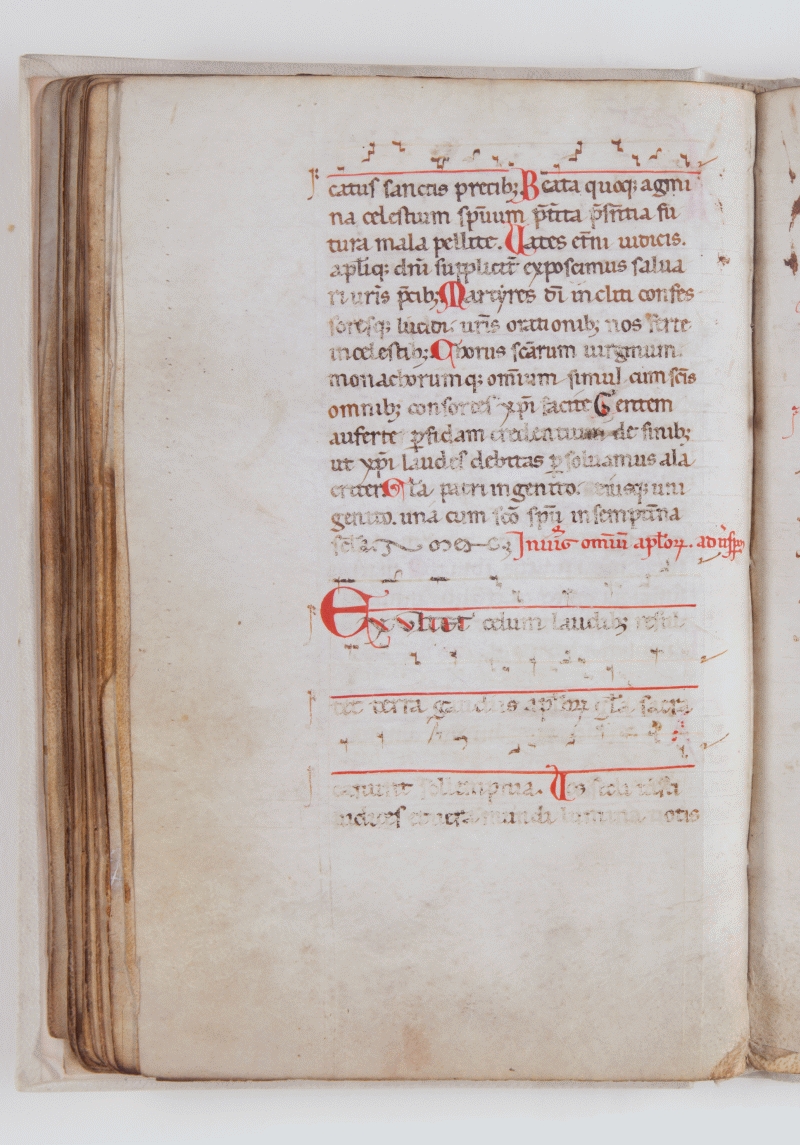 catus sanctis precib; Beata quoq; agmi
na celestium sp̄uum p̄t̄ita p̄sn̄tia fu
tura mala pellite. Uates et̄ni iudicis.
apl̄iq; dn̄i supplicit̄ exposcimus salua
ri ur̄is p̄cib; Martyres dī incliti confes
soresq; lucidi. ur̄is orationib; nos ferte
in celestib; Chorus scārum uirginum.
monachorumq; omīum simul cum scīs
omnib; consortes xp̄i facite Gentem
auferte ꝑfidam credentium de finib;
ut xp̄i laudes debitas ꝑsoluamus ala
criter Gl̄a patri ingenito. eiusq; uni
genito. una cum scō sp̄u in sempit̄na
In uig omīū apl̄oꝝ. ad uesp̄
Exultet celum laudib; resul
tet terra gaudiis apl̄oꝝ gl̄a sacra
canunt sollempnia. Uos secli iusti
iudices et uera mundi lumina uotis